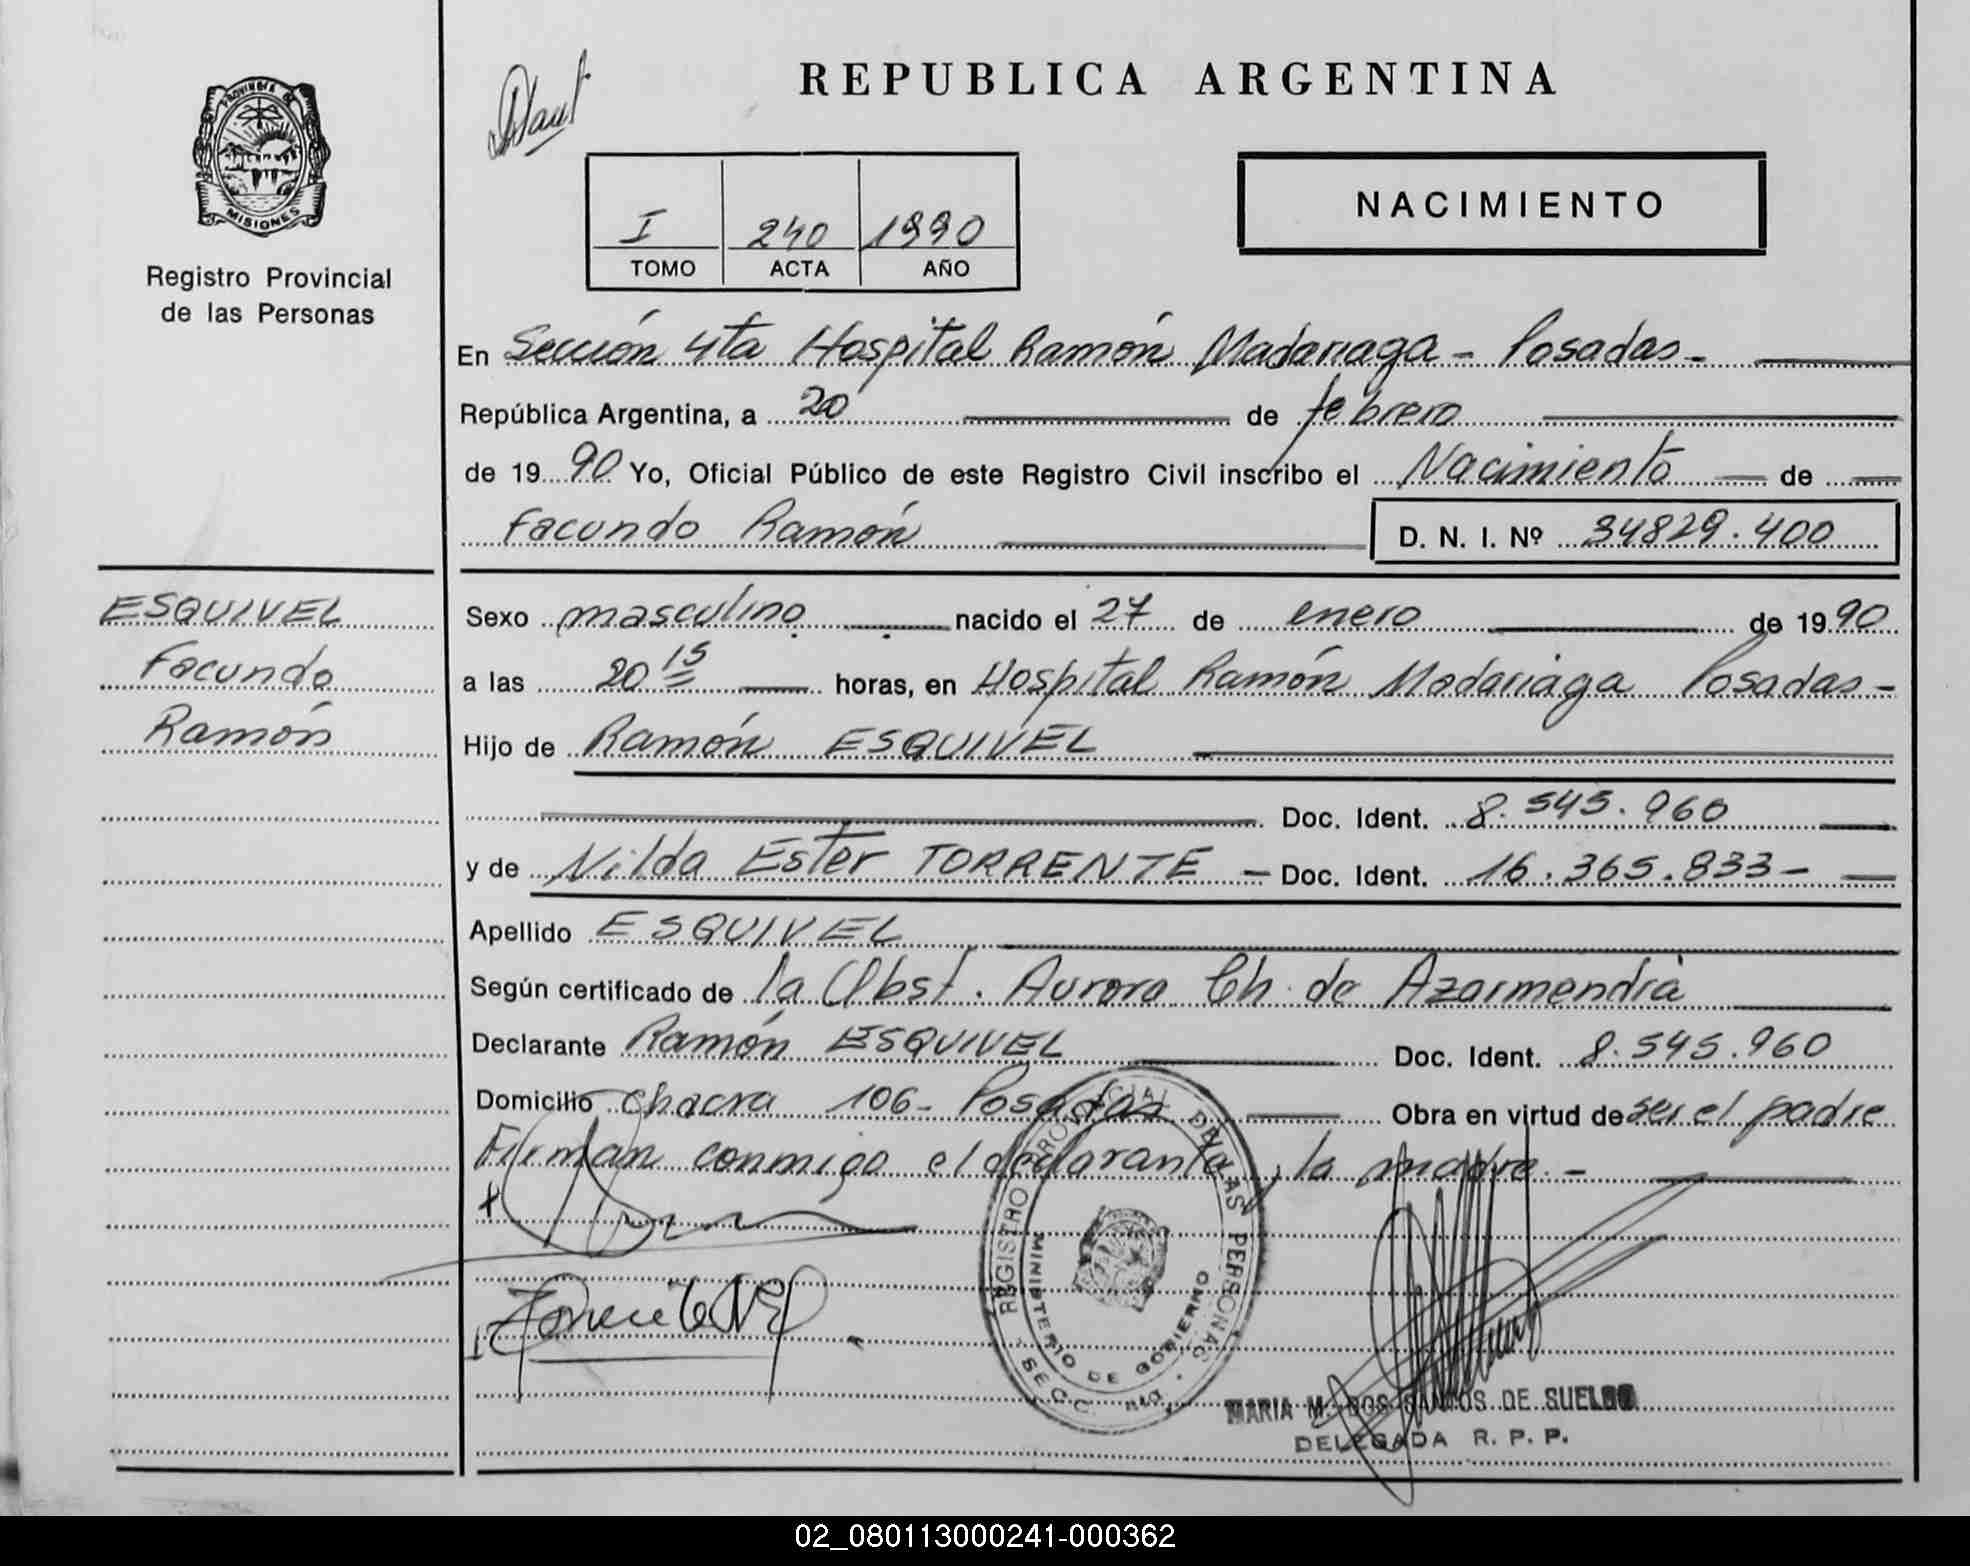 REPUBLICA ARGENTINA
PROVINCIA DE
MISIONES
Registro Provincial
de las Personas
I 240 1990
TOMO ACTA AÑO
NACIMIENTO
En Sección 4ta Hospital Ramón Madariaga - Posadas -
República Argentina, a 20 de febrero
de 1990 Yo, Oficial Público de este Registro Civil inscribo el Nacimiento de
Facundo Ramón D. N. I. Nº 34829.400
ESQUIVEL
Facundo
Ramón
Sexo masculino nacido el 27 de enero de 1990
a las 20 15 horas, en Hospital Ramón Madariaga Posadas -
Hijo de Ramón ESQUIVEL
Doc. Ident. 8.545.960
y de Nilda Ester TORRENTE - Doc. Ident. 16.365.833 -
Apellido ESQUIVEL
Según certificado de la Obst. Aurora Ch. de Azarmendia
Declarante Ramón ESQUIVEL Doc. Ident. 8.545.960
Domicilio chacra 106 - Posadas Obra en virtud de ser el padre
Firman conmigo el declarante y la madre. -
REGISTRO PROVINCIAL DE LAS PERSONAS
MINISTERIO DE GOBIERNO
SECC. 4ta.
MARIA M. DOS SANTOS DE SUELDO
DELEGADA R. P. P.
02_080113000241-000362